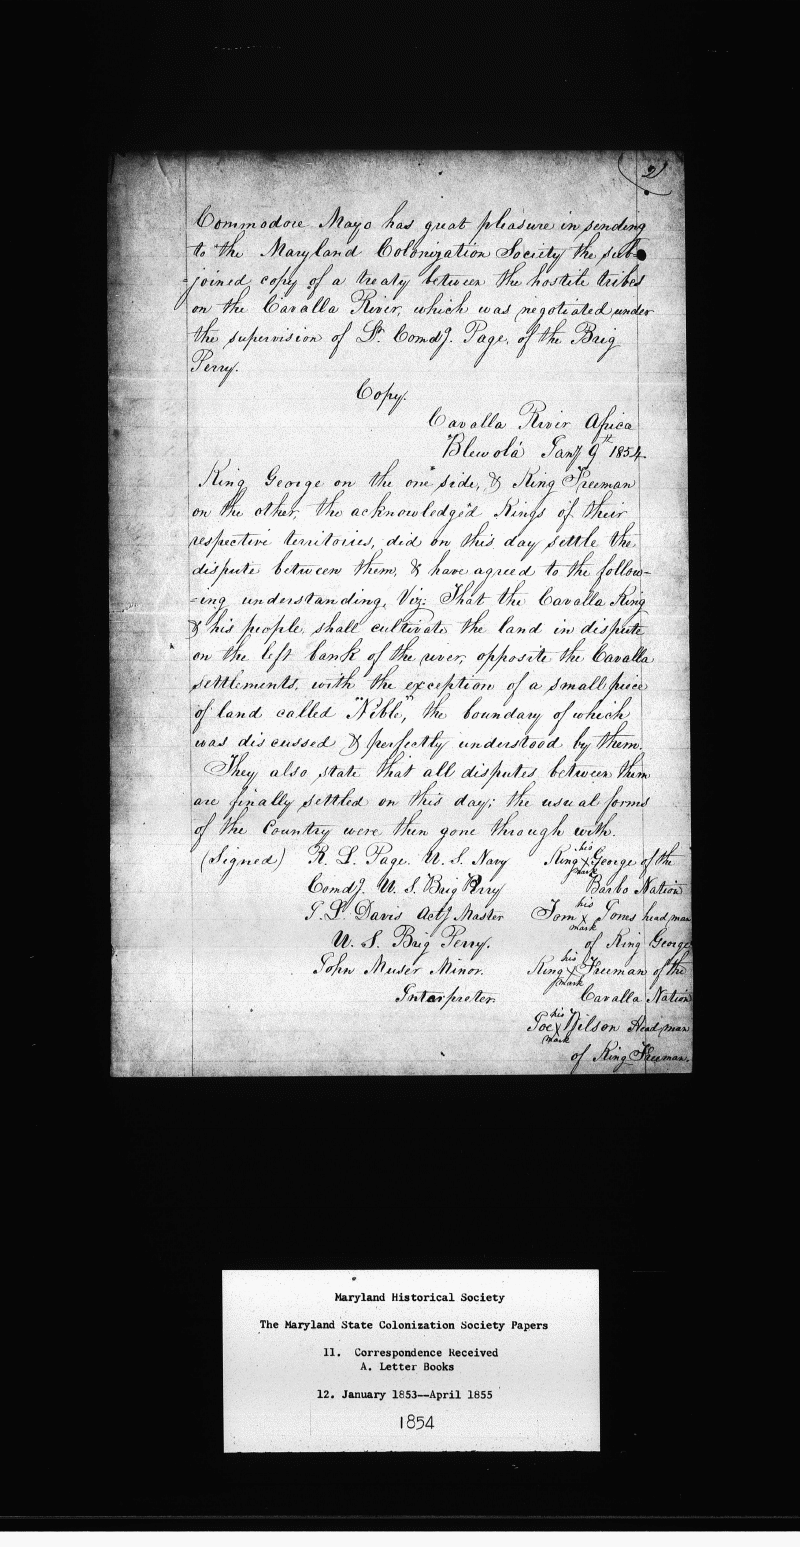 2
Commodore Mayo has great pleasure in sending
to the Maryland Colonization Society the sub=
=joined copy of a treaty between the hostile tribes
on the Cavalla River, which was negotiated under
the supervision of Lt. Comdg. Page, of the Brig
Perry.
Copy.
Cavalla River Africa
"Blewolá" Jany 9th 1854
King George on the one side, & King Freeman
on the other, the acknowledged Kings of their
respective territories, did on this day settle the
dispute between them, & have agreed to the follow-
=ing understanding, Viz: That the Cavalla King
& his people, shall cultivate the land in dispute
on the left bank of the river, opposite the Cavalla
settlements, with the exception of a small piece
of land called "Nible," the boundary of which
was discussed & perfectly understood by them.
They also state that all disputes between them
are finally settled on this day; the usual forms
of the Country were then gone through with.
(Signed) R. L. Page. U. S. Navy King his X mark George of the
Comdg. U. S. Brig Perry Barbo Nation
Davis Actg Master Tom his X mark Jones head man
U. S. Brig Perry. of King George
John Muser Minor. King his X mark Freeman of the
Interpreter. Cavalla Nation
Joe his X mark Wilson Head man
of King Freeman.
Maryland Historical Society
The Maryland State Colonization Society Papers
11. Correspondence Received
A. Letter Books
12. January 1853--April 1855
1854